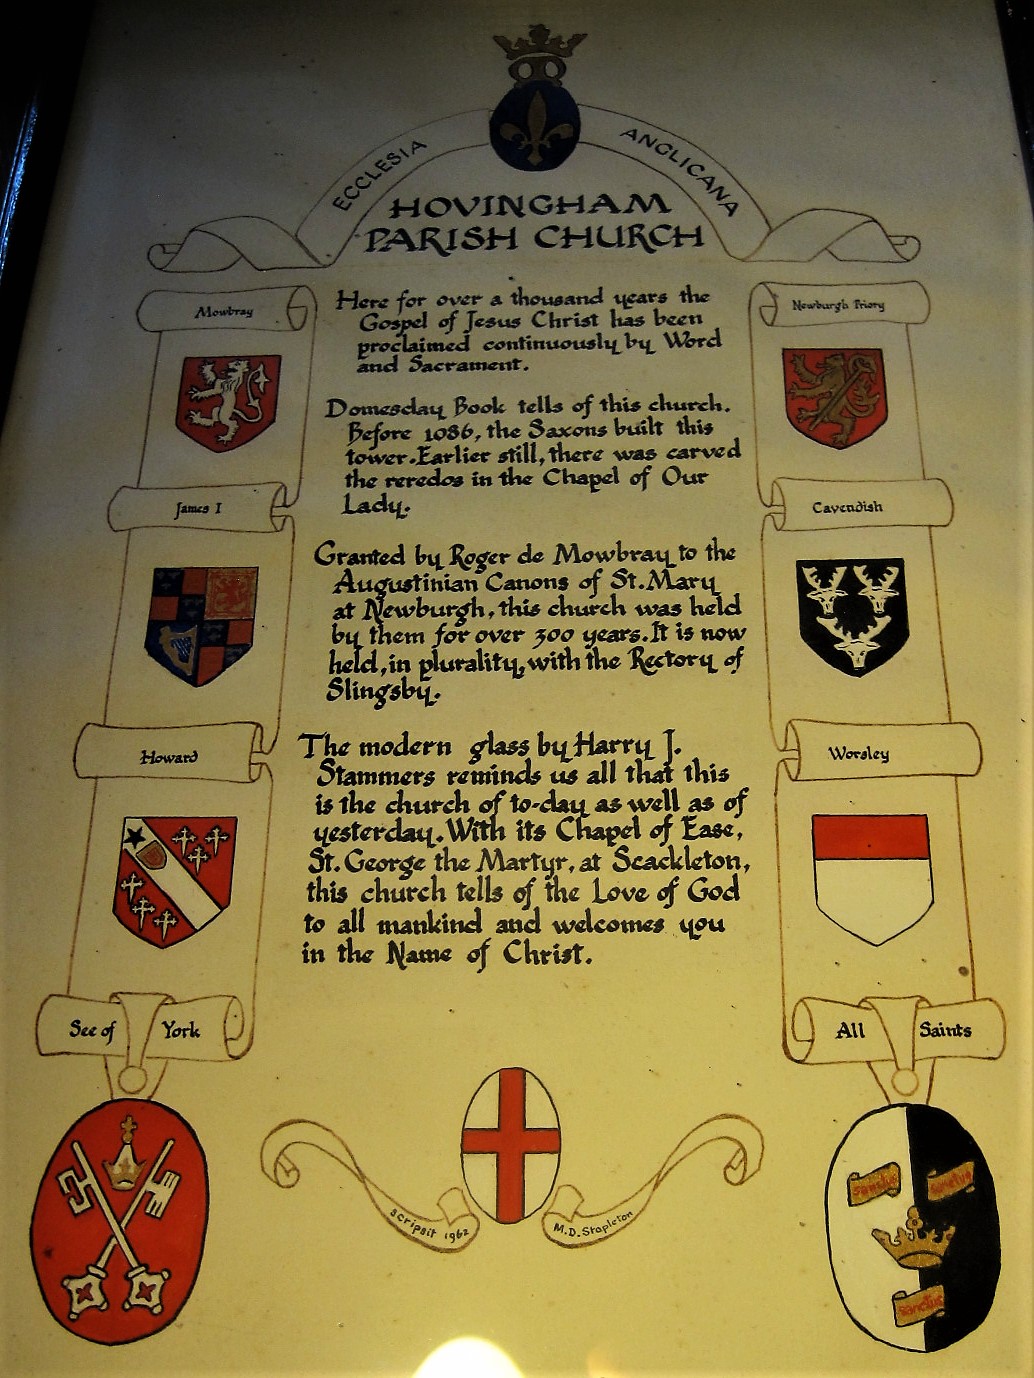 ECCLESIA ANGLICANA
HOVINGHAM
PARISH CHURCH
Here for over a thousand years the
Gospel of Jesus Christ has been
proclaimed continuously by Word
and Sacrament.
Domesday Book tells of this church.
Before 1086, the Saxons built this
tower. Earlier still, there was carved
the reredos in the Chapel of Our
Lady.
Granted by Roger de Mowbray to the
Augustinian Canons of St. Mary
at Newburgh, this church was held
by them for over 300 years. It is now
held, in plurality, with the Rectory of
Slingsby.
The modern glass by Harry J.
Stammers reminds us all that this
is the church of to-day as well as of
yesterday. With its Chapel of Ease,
St. George the Martyr, at Scackleton,
this church tells of the Love of God
to all mankind and welcomes you
in the Name of Christ.
Mowbray
James I
Howard
See of York
Newburgh Priory
Cavendish
Worsley
All Saints
Sanctus
Sanctus
Sanctus
scripsit 1962
M.D. Stapleton